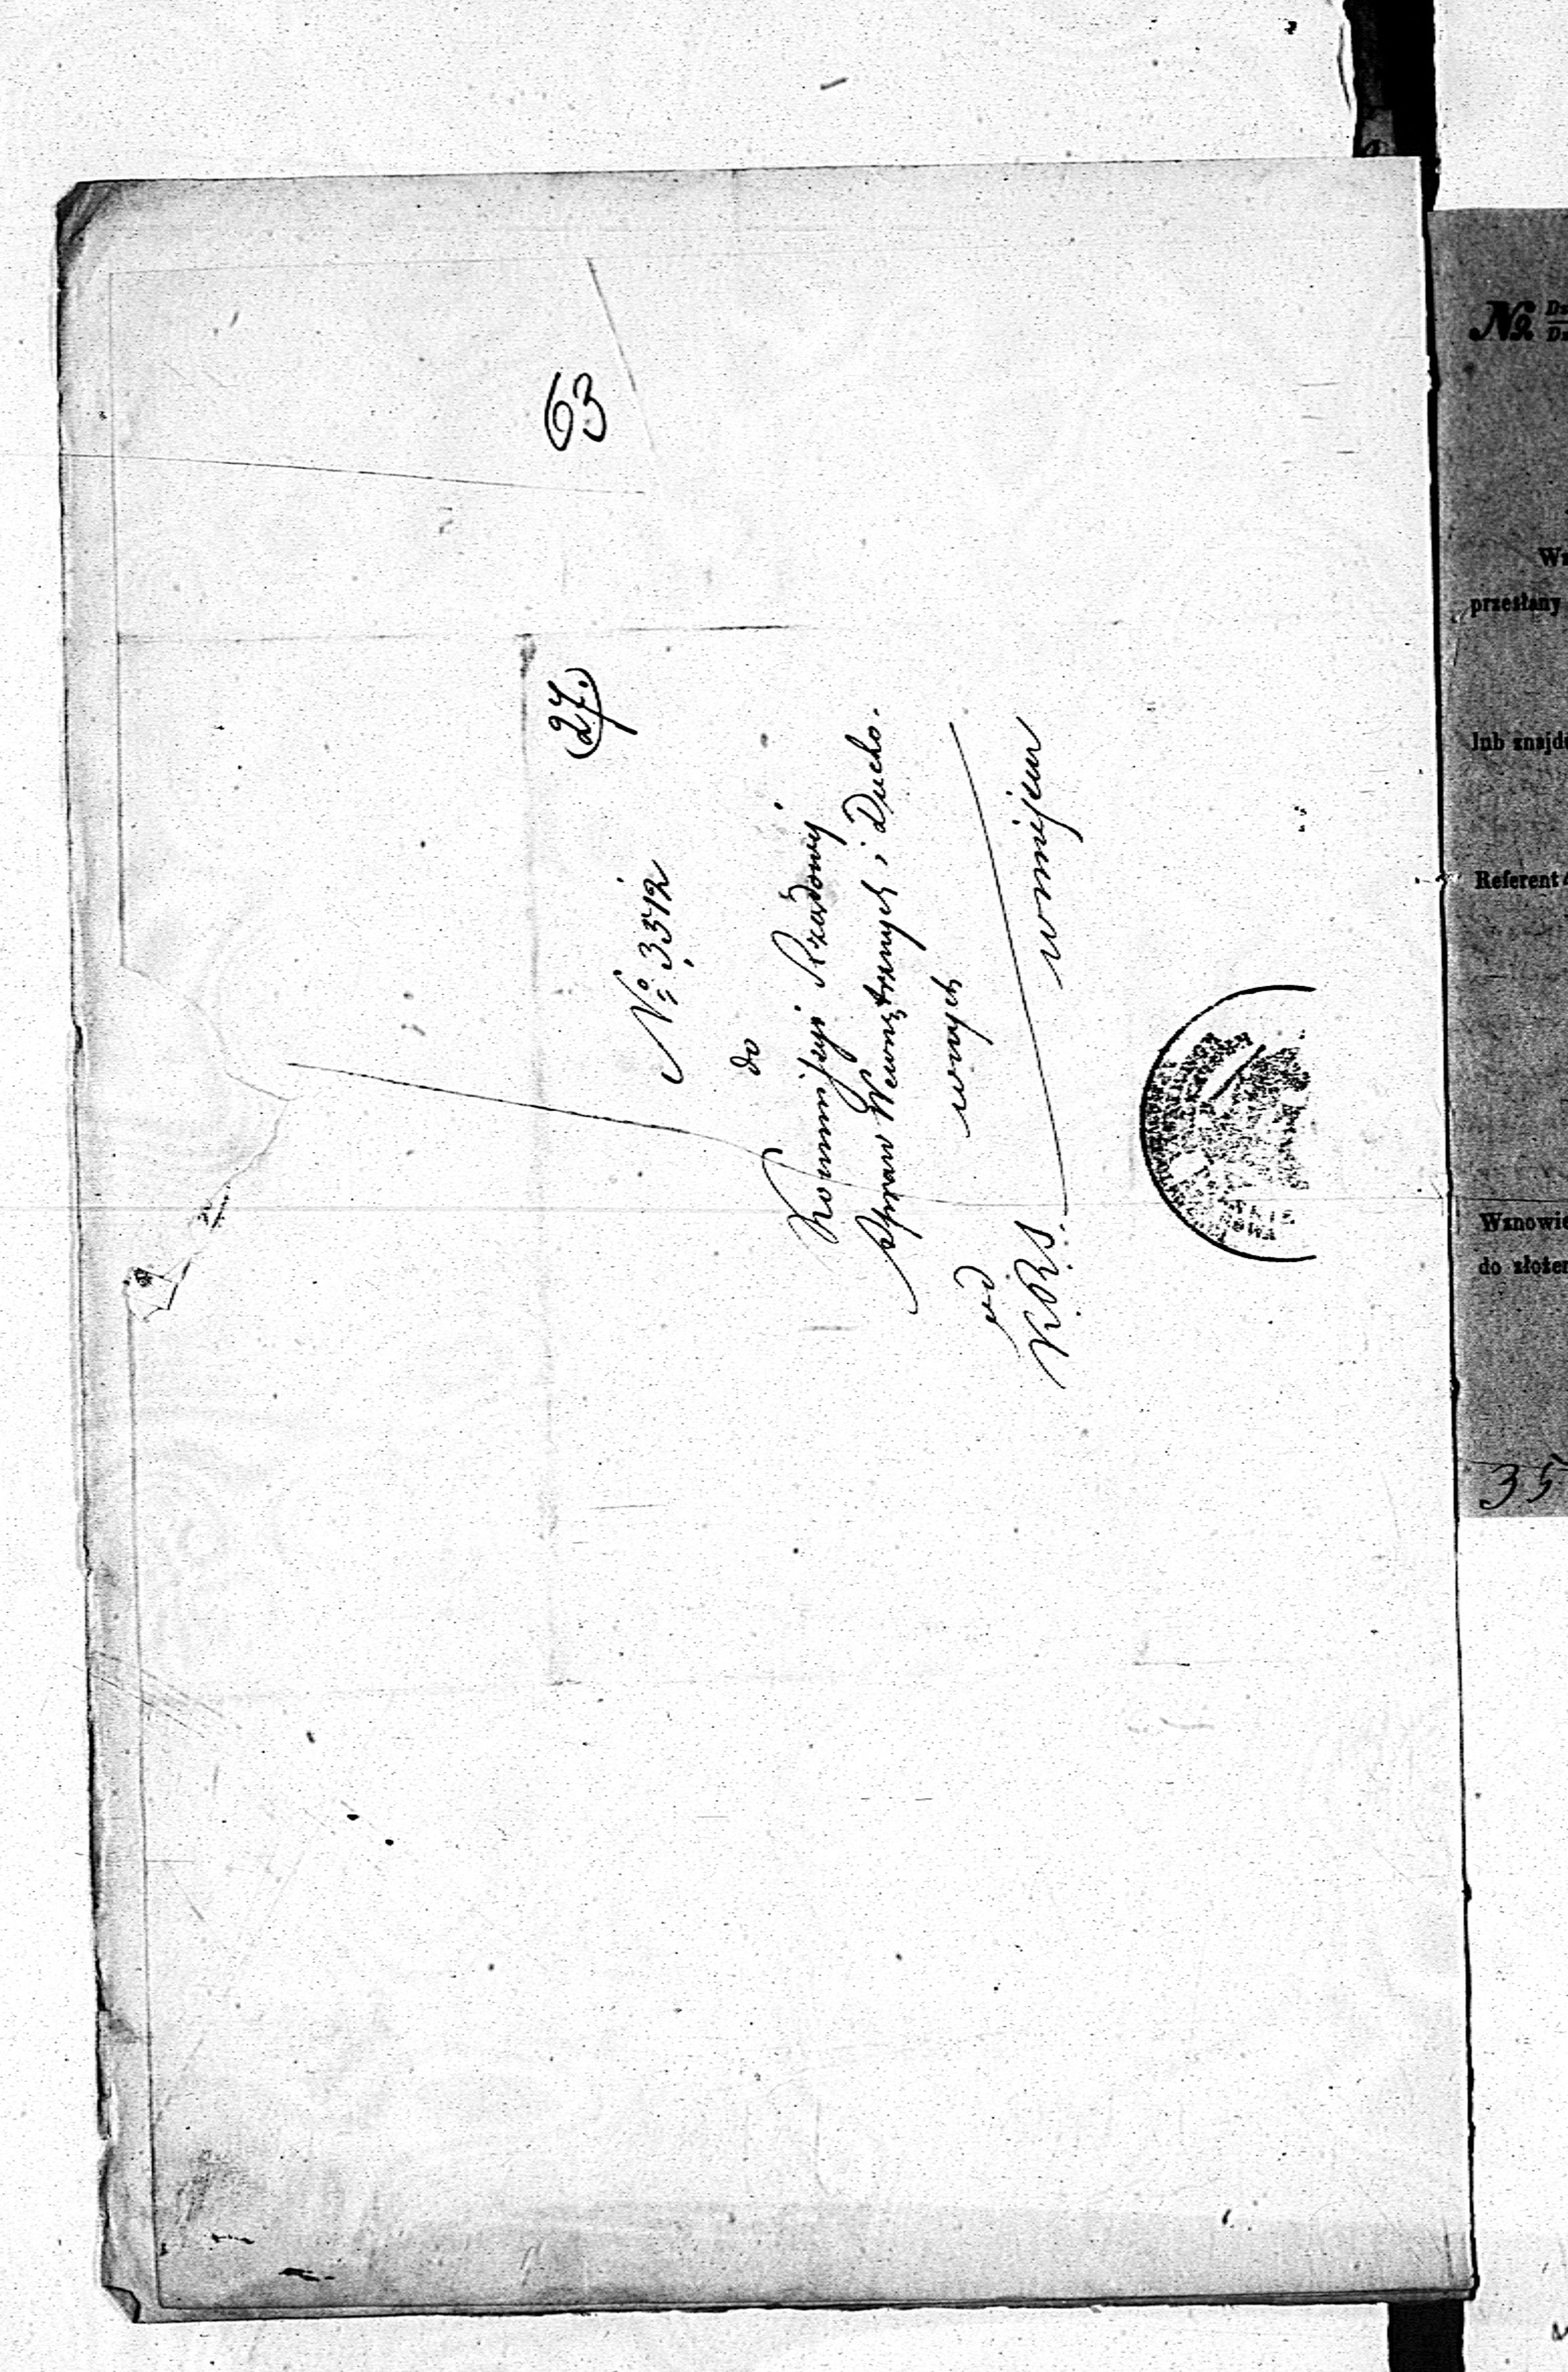 63
27.
No 3512
do
Kommissyi Rządowy
Spraw Wewnętrznych i Ducho.
wnych
od
K.R.S. w mieyscu
No
przesłany
lub znajd
Referent
Wznowie
do złożen
35